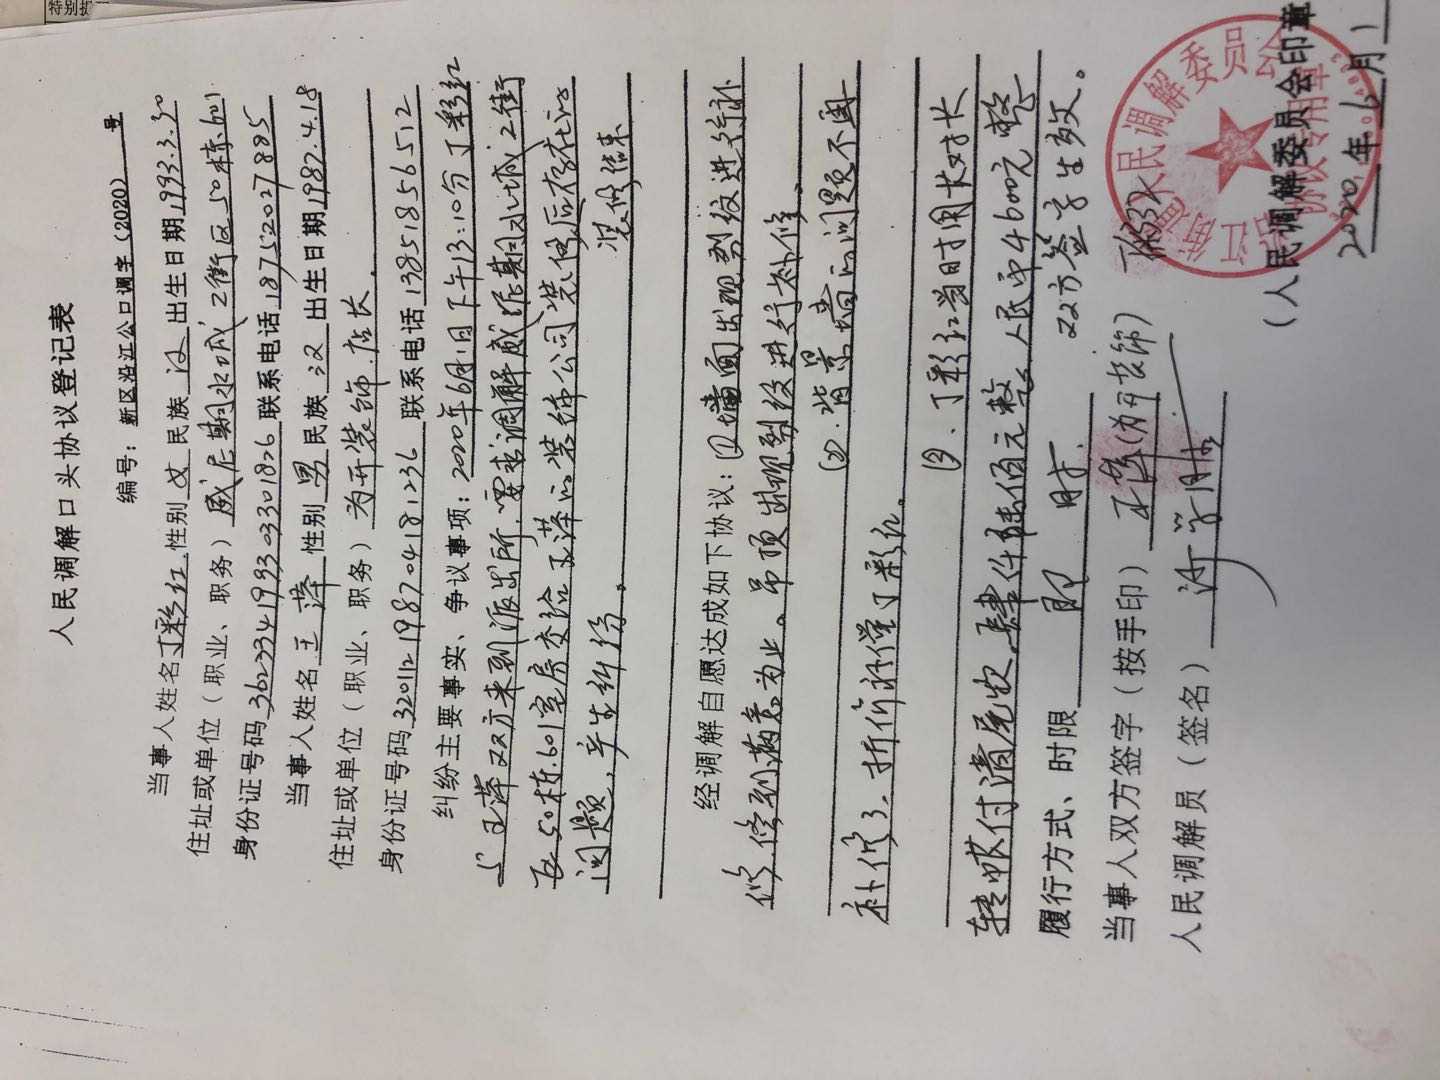 特别
人民调解口头协议登记表
编号：新区沿江公口调字（2020） 号
当事人姓名 丁彩红 性别 女 民族 汉 出生日期 1993.3.30
住址或单位（职业、职务）威尼斯水城2街区50栋601
身份证号码 362334199303301826 联系电话 18752027885
当事人姓名 王萍 性别 男 民族 汉 出生日期 1987.4.18
住址或单位（职业、职务）为开装饰.店长.
身份证号码 320112198704181236 联系电话 13851856512
纠纷主要事实、争议事项：2020年6月1日下午13:10分丁彩红
与王萍双方来到派出所,要求调解威尼斯水城2街
区50栋.601室房交给王萍的装饰公司装修后存在的
问题,产生纠纷。 装修结束
经调解自愿达成如下协议：①墙面出现裂纹进行补
修,修到满意为止。吊顶出现裂纹进行补修.
②.背景墙的问题不再
补修了,折价补偿丁彩红。
③.丁彩红当时用长对长
转帐付清尾款,肆仟陆佰元整,人民币4600元整
履行方式、时限 即时. 双方签字生效。
当事人双方签字（按手印） 王萍(为开装饰)
人民调解员（签名）
（人民调解委员会印章
2020年6月1
人民调解委员会
协议专用章